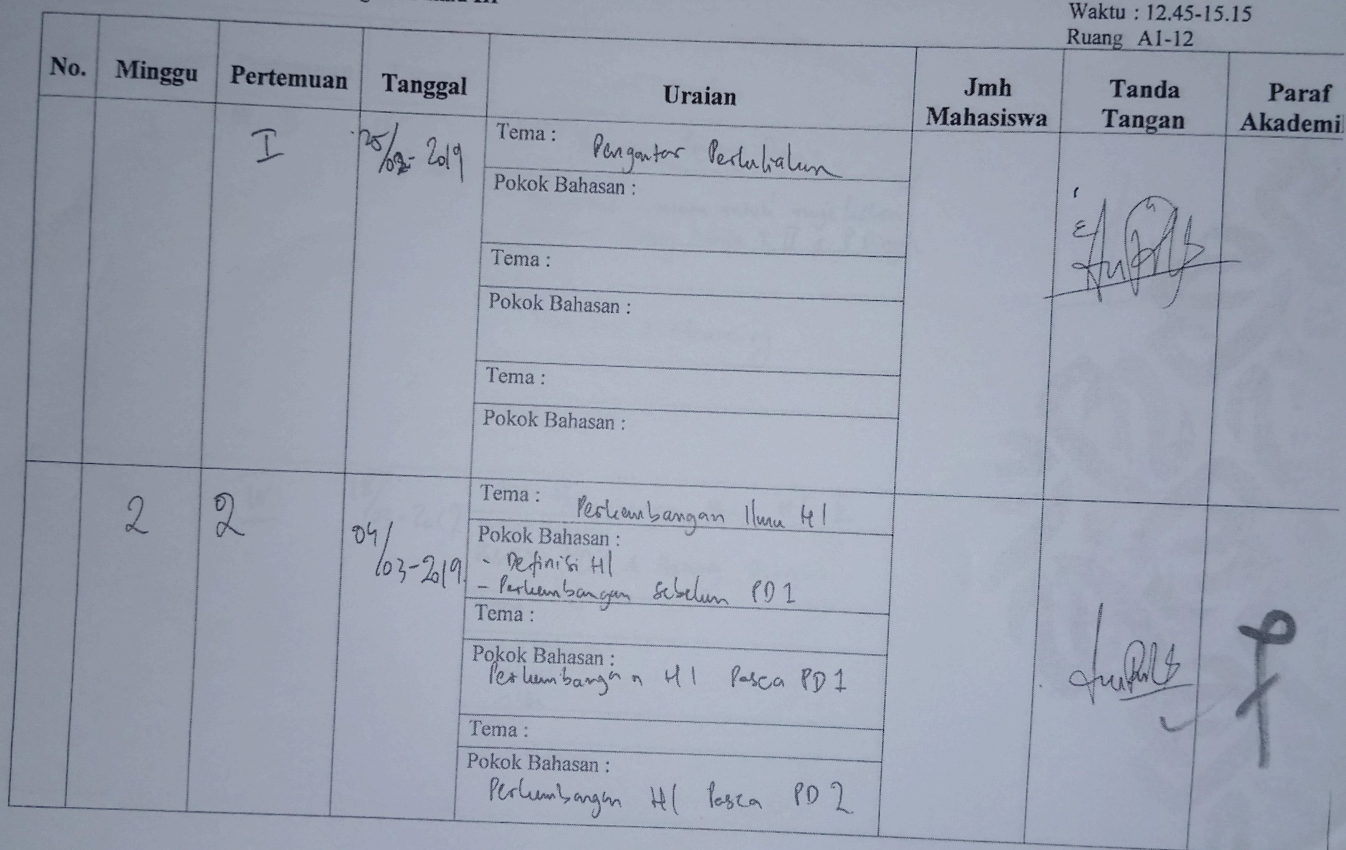 Waktu : 12.45-15.15
Ruang A1-12
No. Minggu Pertemuan Tanggal Uraian Jmh Mahasiswa Tanda Tangan Paraf Akademi
I 25/02-2019 Tema : Pengantar Perkuliahan
Pokok Bahasan :
Tema :
Pokok Bahasan :
Tema :
Pokok Bahasan :
2 2 04/03-2019 Tema : Perkembangan Ilmu HI
Pokok Bahasan :
- Definisi HI
- Perkembangan sebelum PD 1
Tema :
Pokok Bahasan :
Perkembangan HI Pasca PD 1
Tema :
Pokok Bahasan :
Perkembangan HI Pasca PD 2